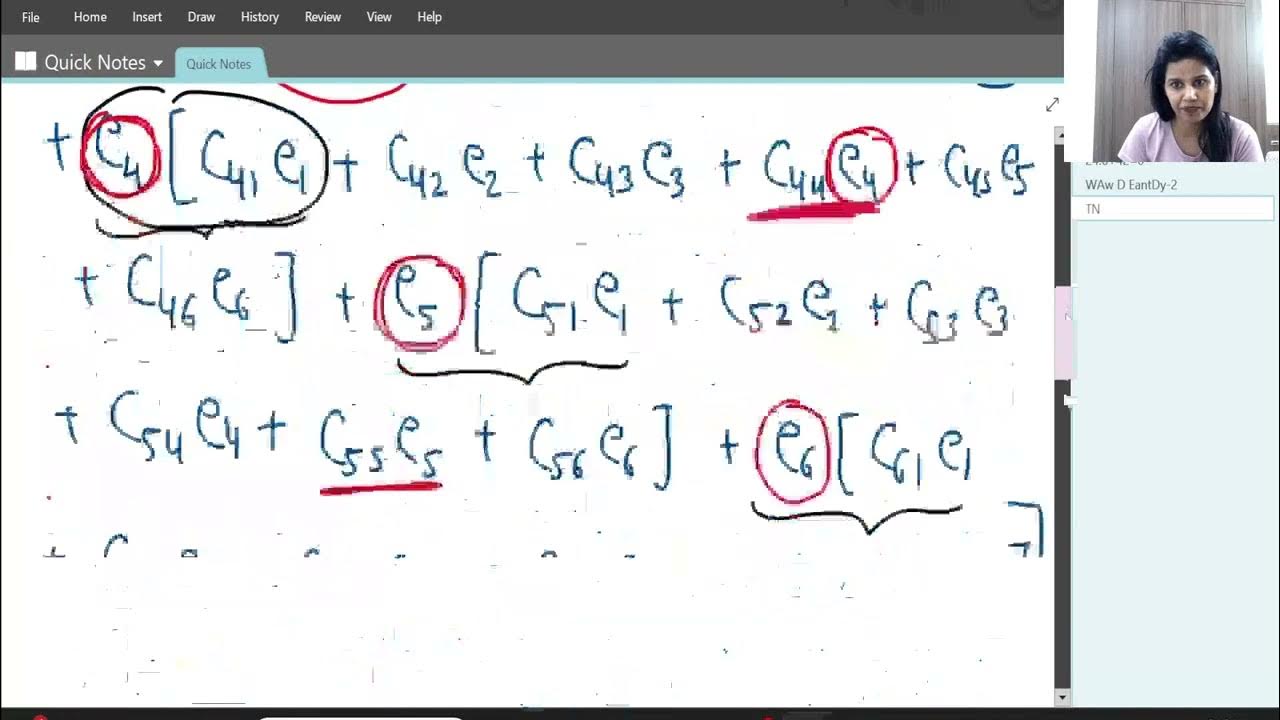 File Home Insert Draw History Review View Help
Quick Notes Quick Notes
+ e₄ [ C₄₁ e₁ + C₄₂ e₂ + C₄₃ e₃ + C₄₄ e₄ + C₄₅ e₅
WAw D EantDy-2
TN
+ C₄₆ e₆ ] + e₅ [ C₅₁ e₁ + C₅₂ e₂ + C₅₃ e₃
+ C₅₄ e₄ + C₅₅ e₅ + C₅₆ e₆ ] + e₆ [ C₆₁ e₁